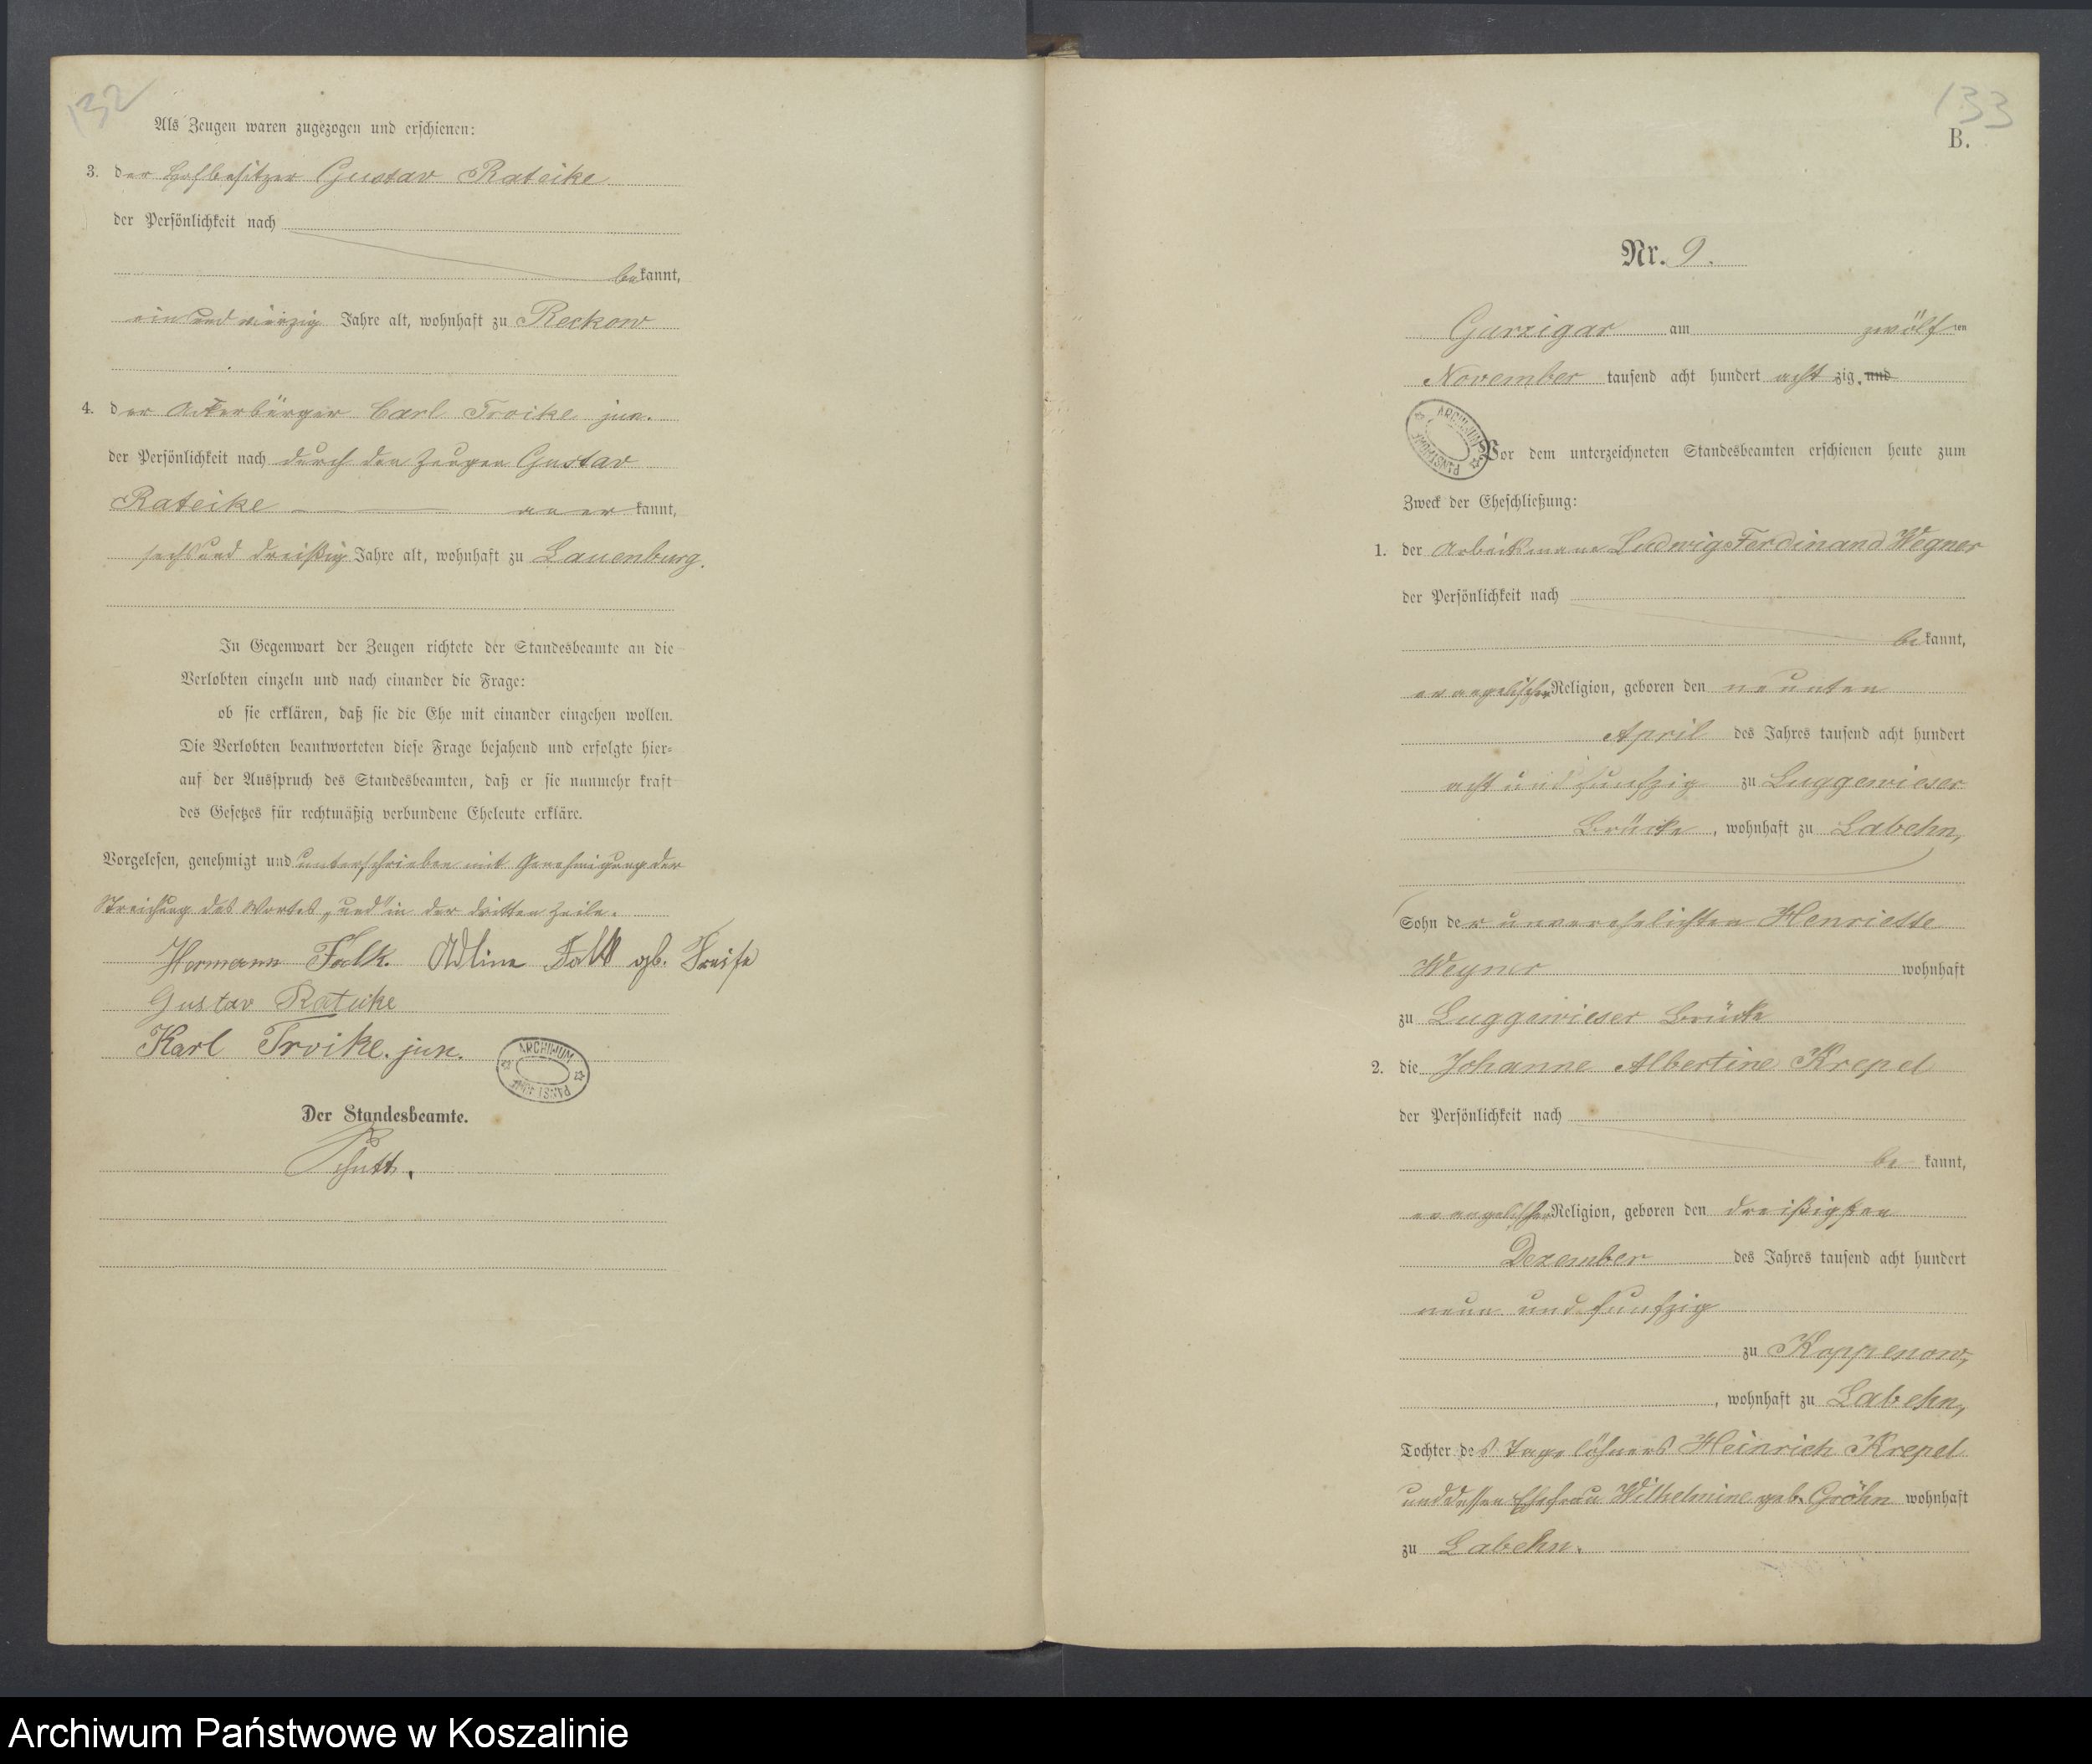 132
Als Zeugen waren zugezogen und erschienen:
3. der Hofbesitzer Gustav Rateike
der Persönlichkeit nach
bekannt,
ein und vierzig Jahre alt, wohnhaft zu Reckow
4. der Ackerbürger Carl Troike jun.
der Persönlichkeit nach durch den Zeugen Gustav
Rateike anerkannt,
sechs und dreißig Jahre alt, wohnhaft zu Lauenburg.
In Gegenwart der Zeugen richtete der Standesbeamte an die
Verlobten einzeln und nach einander die Frage:
ob sie erklären, daß sie die Ehe mit einander eingehen wollen.
Die Verlobten beantworteten diese Frage bejahend und erfolgte hier-
auf der Ausspruch des Standesbeamten, daß er sie nunmehr kraft
des Gesetzes für rechtmäßig verbundene Eheleute erkläre.
Vorgelesen, genehmigt und unterschrieben mit Genehmigung der
Streichung des Wortes „und" in der dritten Zeile.
Hermann Falk. Adline Falk gb.
Gustav Rateike
Karl Troike. jun.
ARCHIWUM PAŃSTWOWE
Der Standesbeamte.
133
B.
Nr. 9.
Garzigar am zwölften
November tausend acht hundert achtzig. und
ARCHIWUM PAŃSTWOWE
Vor dem unterzeichneten Standesbeamten erschienen heute zum
Zweck der Eheschließung:
1. der Arbeitsmann Ludwig Ferdinand Wegner
der Persönlichkeit nach
bekannt,
evangelischer Religion, geboren den neunten
April des Jahres tausend acht hundert
acht und funfzig zu Luggewieser
Brücke, wohnhaft zu Labehn,
Sohn der unverehelichten Henriette
Wegner wohnhaft
zu Luggewieser Brücke
2. die Johanne Albertine Krepel
der Persönlichkeit nach
bekannt,
evangelischer Religion, geboren den dreißigsten
Dezember des Jahres tausend acht hundert
neun und funfzig
zu Koppenow,
, wohnhaft zu Labehn,
Tochter des Tagelöhners Heinrich Krepel
und dessen Ehefrau Wilhelmine geb. Gröhn wohnhaft
zu Labehn.
Archiwum Państwowe w Koszalinie